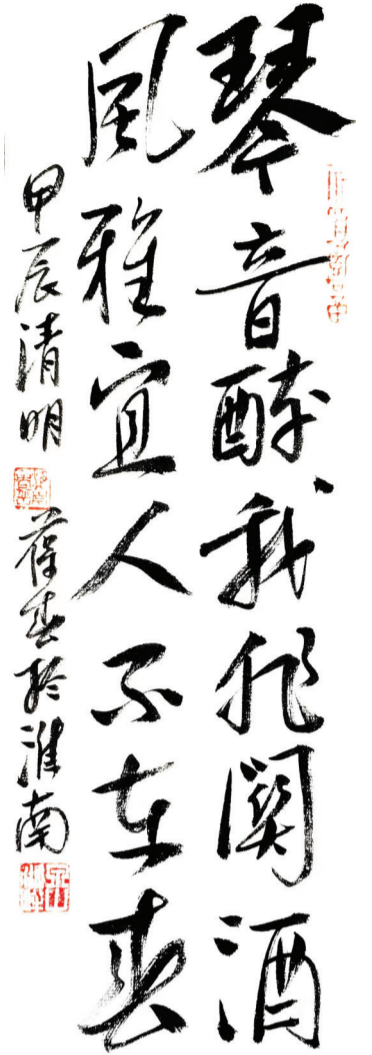 琴音醉我非關酒
風雅宜人不在春
甲辰清明 葆春於淮南